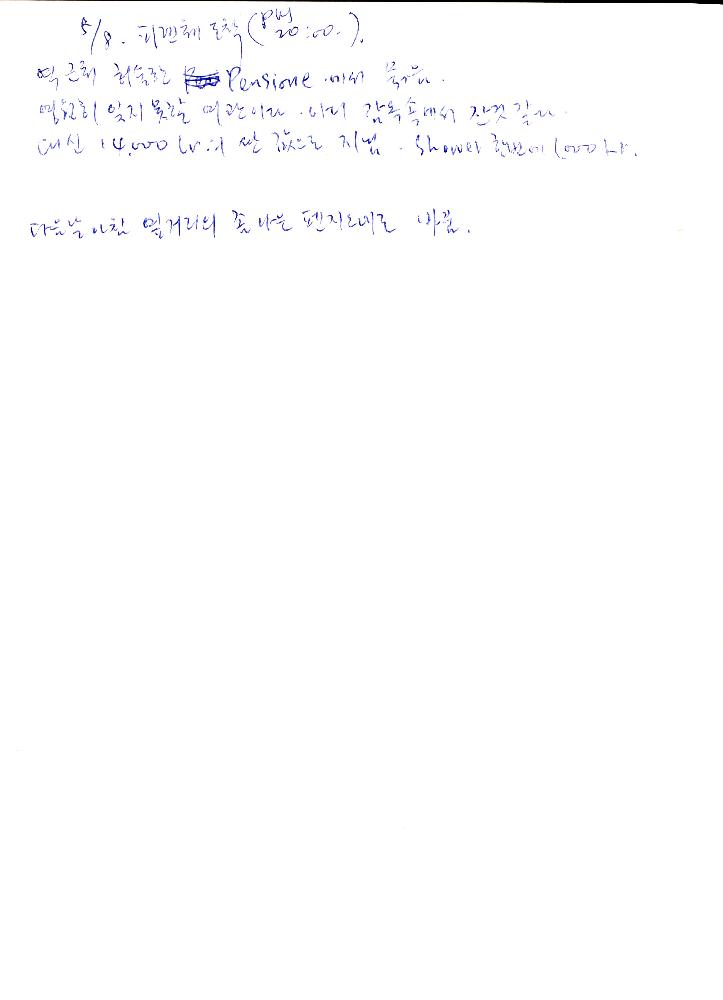 5/8. 피렌체 도착 (PM 20:00.).
역 근처 허술한 Pensione 에서 묵음.
영원히 잊지 못할 여관이다. 마치 감옥속에서 잔것 같다.
대신 14,000 Lr.의 싼 값으로 지냄. Shower 한번에 1,000 Lr.
다음날 아침 옆거리의 좀 나은 펜지오네로 바꿈.